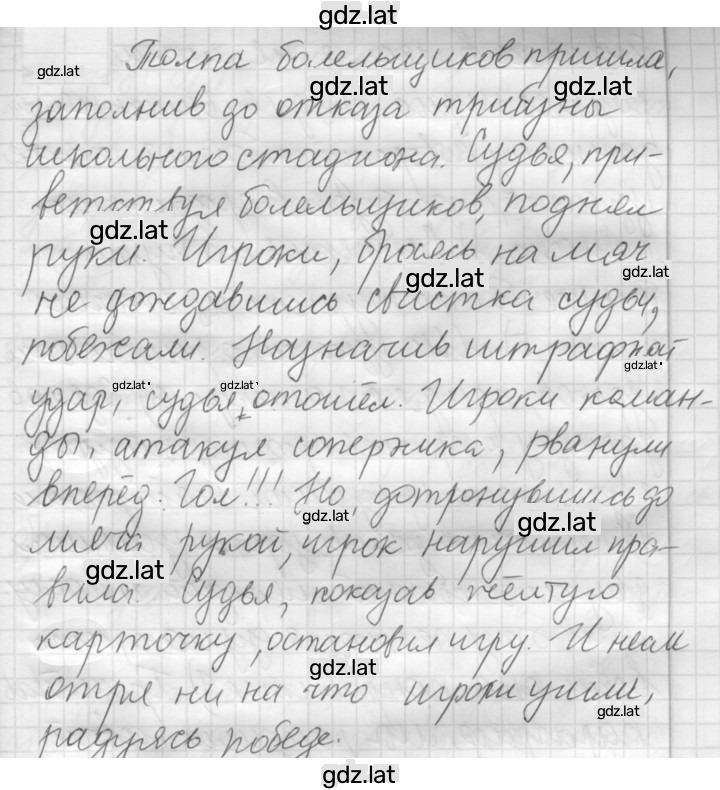 gdz.lat
Толпа болельщиков пришла,
gdz.lat
gdz.lat gdz.lat
заполнив до отказа трибуны
школьного стадиона. Судья, при-
ветствуя болельщиков, поднял
gdz.lat
руки. Игроки, бросясь на мяч
gdz.lat gdz.lat
не дождавшись свистка судьи,
побежали. Назначив штрафной
gdz.lat
gdz.lat gdz.lat
удар, судья, отошёл. Игроки коман-
ды, атакуя соперника, рванули
вперёд. Гол!!! Но, дотронувшись до
gdz.lat gdz.lat
мяча рукой, игрок нарушил пра-
gdz.lat
вила. Судья, показав жёлтую
карточку, остановил игру. И несм
gdz.lat
отря ни на что игроки ушли,
gdz.lat
радуясь победе.
gdz.lat